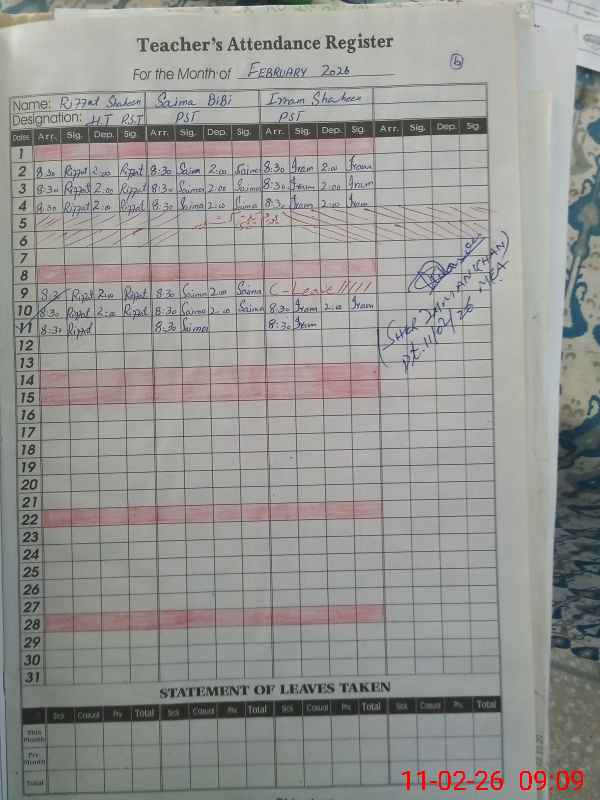 Teacher's Attendance Register
For the Month of FEBRUARY 2026
6
Name: Riffat Shaheen Saima BiBi Irram Shaheen
Designation: HT P.S.T PST PST
Dates Arr. Sig. Dep. Sig. Arr. Sig. Dep. Sig. Arr. Sig. Dep. Sig. Arr. Sig. Dep. Sig.
1
2 8:30 Riffat 2:00 Riffat 8:30 Saima 2:00 Saima 8:30 Iram 2:00 Iram
3 8:30 Riffat 2:00 Riffat 8:30 Saima 2:00 Saima 8:30 Iram 2:00 Iram
4 8:30 Riffat 2:00 Riffat 8:30 Saima 2:00 Saima 8:30 Iram 2:00 Iram
5
6
7
8
9 Riffat 2:00 Riffat 8:30 Saima 2:00 Saima C-Leave
10 8:30 Riffat 2:00 Riffat 8:30 Saima 2:00 Saima 8:30 Iram 2:00 Iram
11 8:30 Riffat 8:30 Saima 8:30 Iram
(SHER ZAMAN KHAN)
MEA
Dt. 11/02/26
12
13
14
15
16
17
18
19
20
21
22
23
24
25
26
27
28
29
30
31
STATEMENT OF LEAVES TAKEN
Sick Casual Prv. Total Sick Casual Prv. Total Sick Casual Prv. Total Sick Casual Prv. Total
This Month
Pre Month
Total
11-02-26 09:09